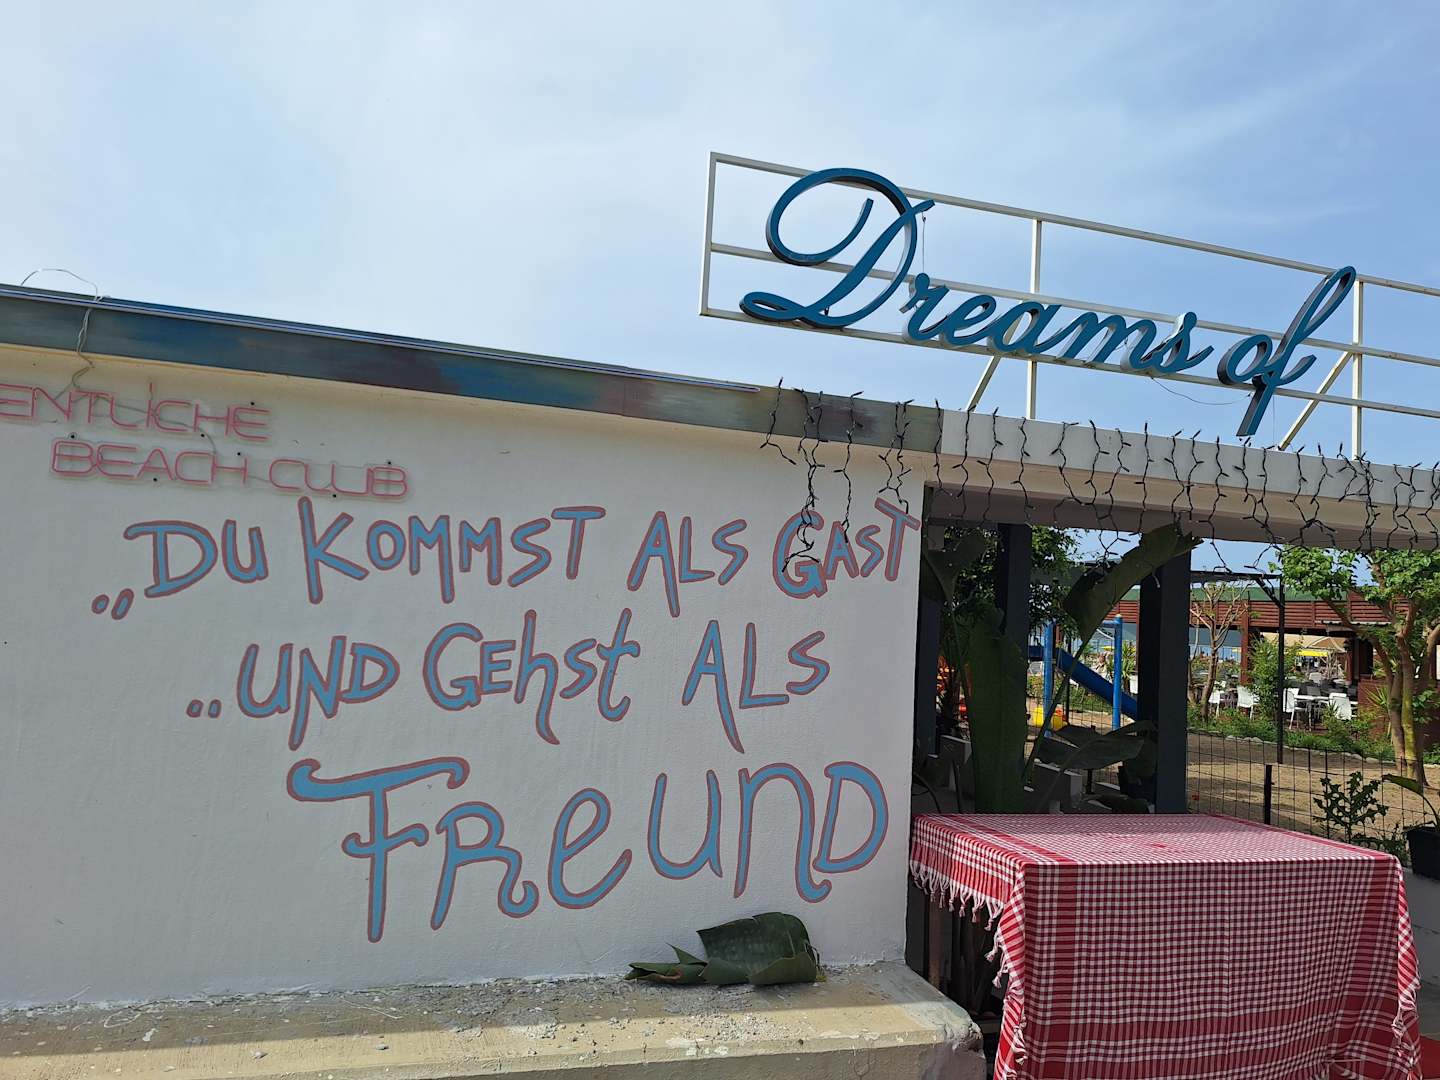 Dreams of
ENTLICHE
BEACH CLUB
„DU KOMMST ALS GAST
..UND GEHST ALS
FREUND